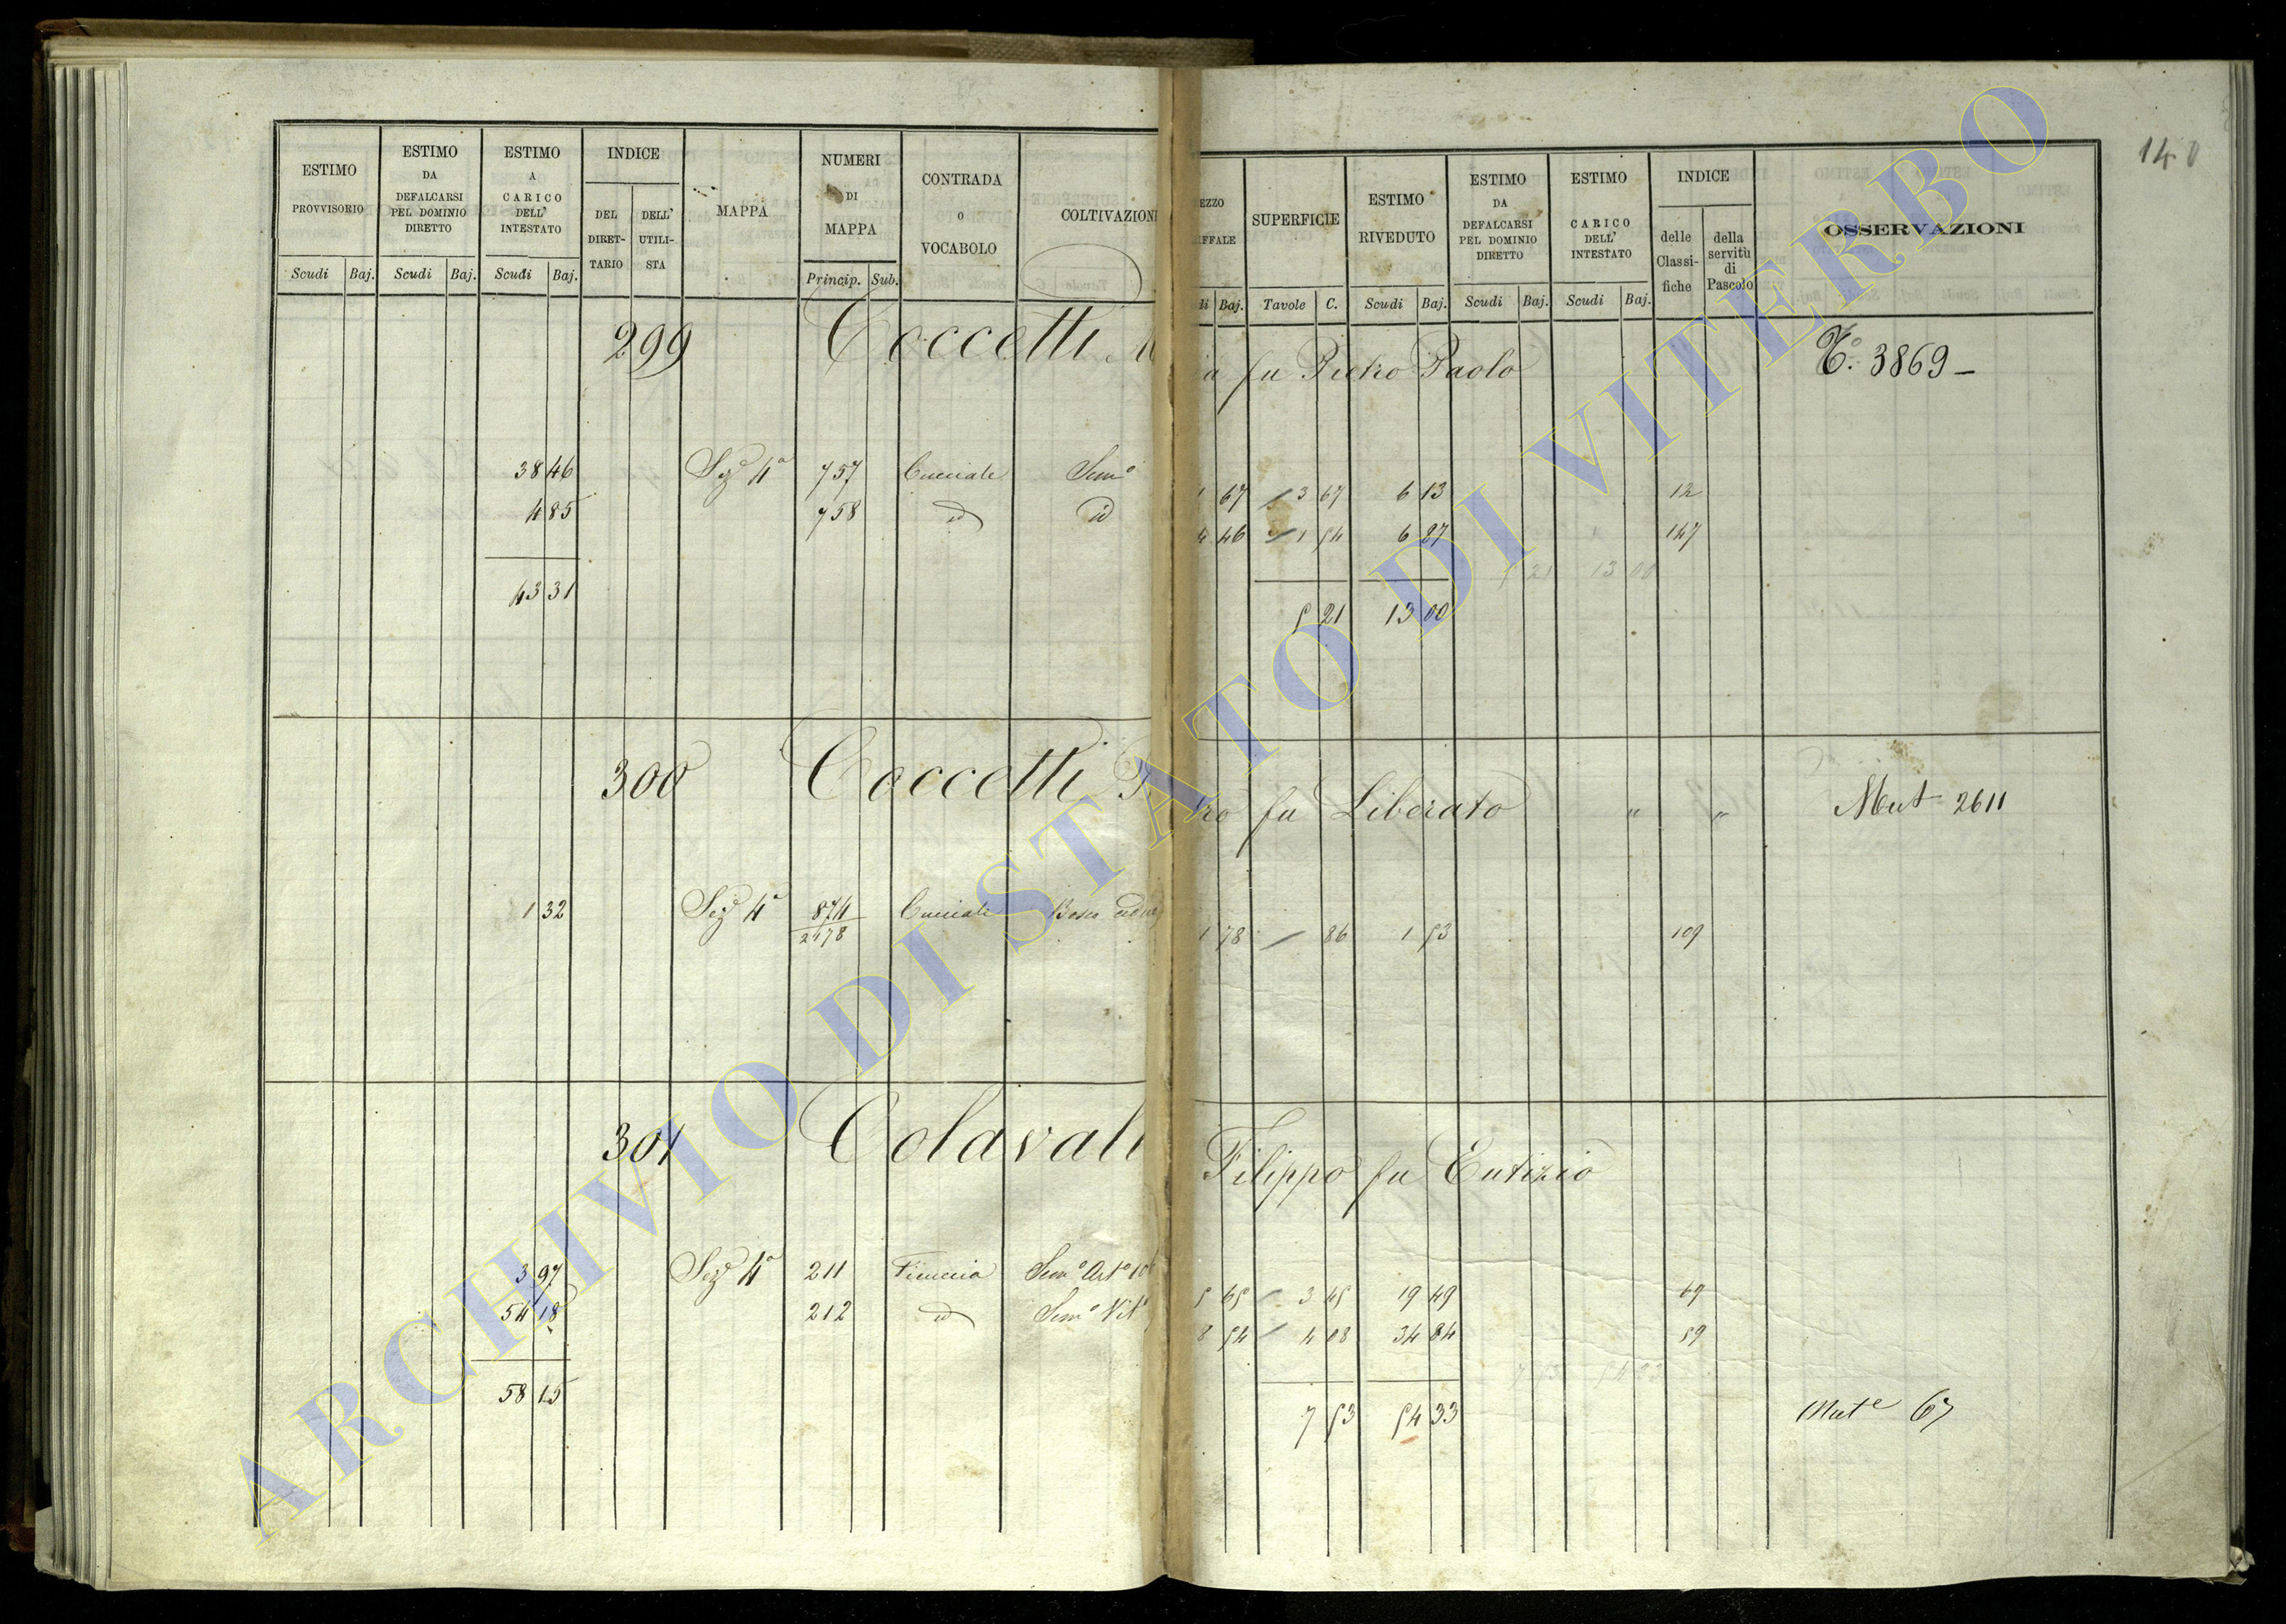 140
ESTIMO PROVVISORIO Scudi Baj.
ESTIMO DA DEFALCARSI PEL DOMINIO DIRETTO Scudi Baj.
ESTIMO A CARICO DELL' INTESTATO Scudi Baj.
INDICE DEL DIRET- TARIO DELL' UTILI- STA
MAPPA
NUMERI DI MAPPA Princip. Sub.
CONTRADA O VOCABOLO
COLTIVAZION
EZZO IFFALE di Baj.
SUPERFICIE Tavole C.
ESTIMO RIVEDUTO Scudi Baj.
ESTIMO DA DEFALCARSI PEL DOMINIO DIRETTO Scudi Baj.
ESTIMO CARICO DELL' INTESTATO Scudi Baj.
INDICE delle Classi- fiche della servitù di Pascolo
OSSERVAZIONI
299 Coccetti a fu Pietro Paolo To. 3869
38 46 Seze 4a 757 Cucciale Semo 1 67 3 67 6 13 12
4 85 758 id id 4 46 1 54 6 87 147
5 21 13 00
43 31 5 21 13 00
300 Coccetti ro fu Liberato " " Mut 2611
1 32 Seze 4a 874 Cucciale Bosco ceduo 1 78 86 1 53 109
2178
301 Colavali Filippo fu Eutizio
3 97 Seze 4a 211 Ficuccia Semo Arto 5 65 3 45 19 49 69
54 18 212 id Semo Vito 8 54 4 08 34 84 59
58 15 7 53 54 33 Mute 67
ARCHIVIO DI STATO DI VITERBO